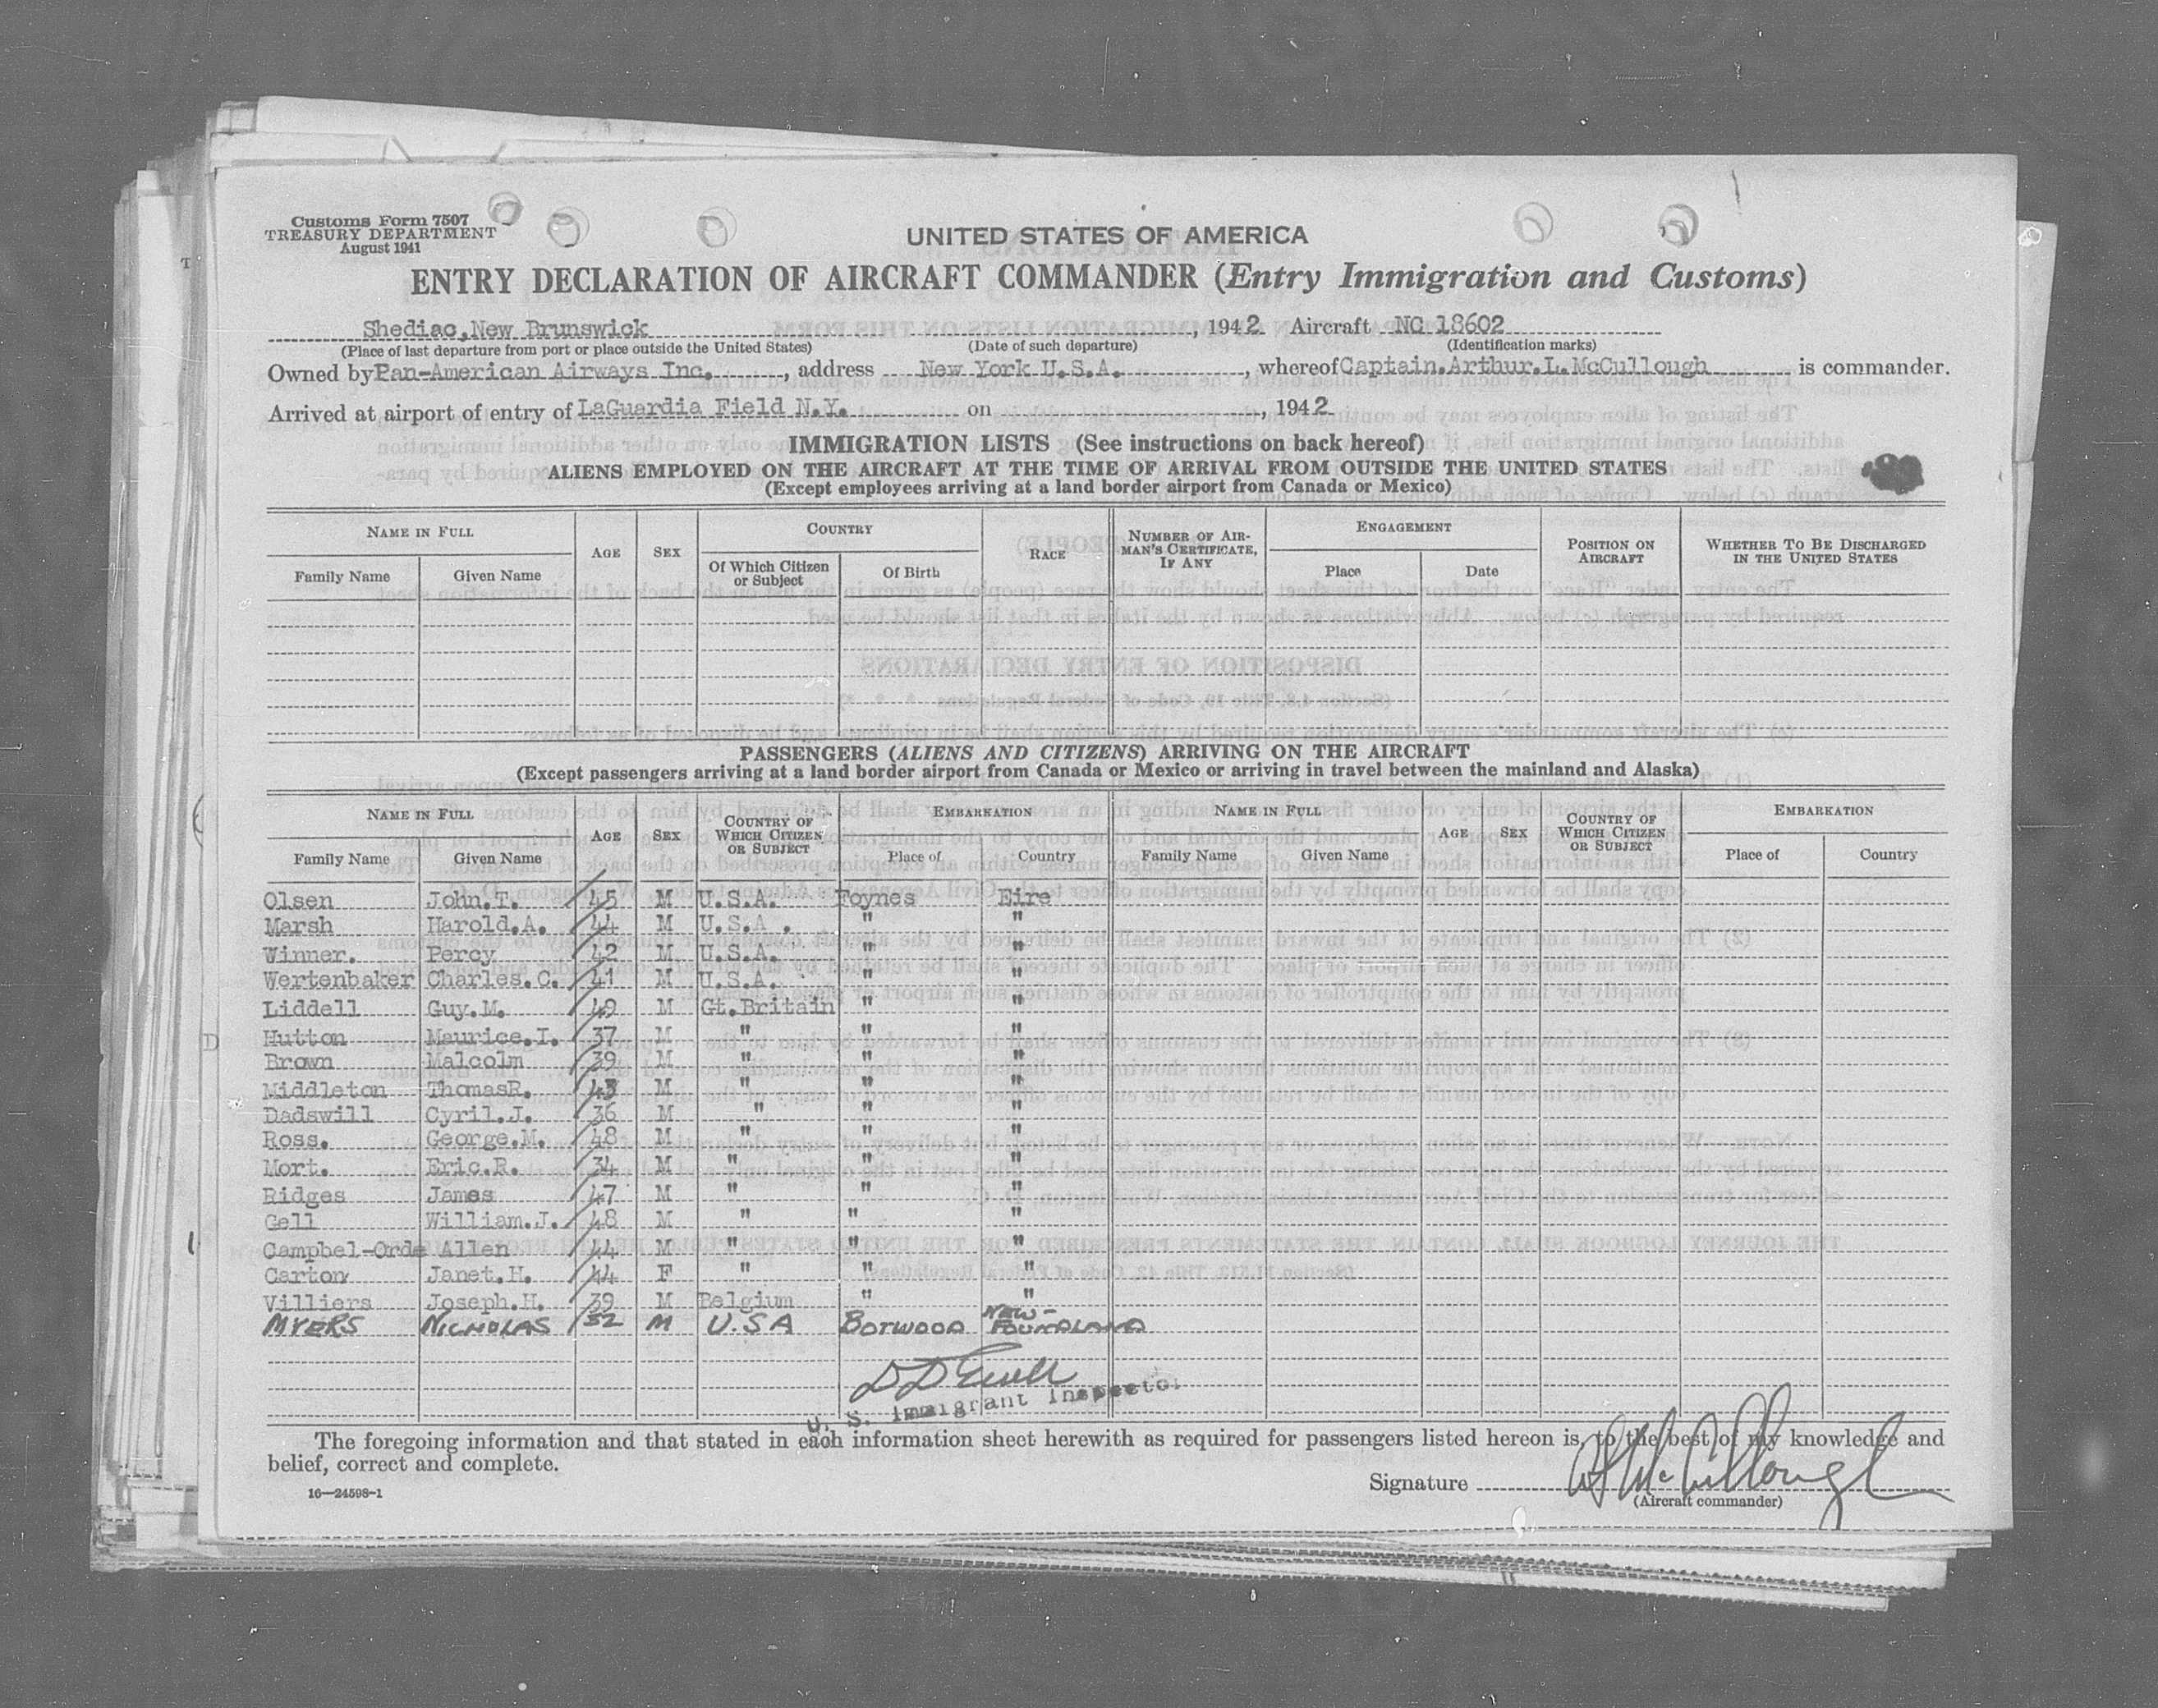 Customs Form 7507
TREASURY DEPARTMENT
August 1941
UNITED STATES OF AMERICA
ENTRY DECLARATION OF AIRCRAFT COMMANDER (Entry Immigration and Customs)
Shediac, New Brunswick, 1942 Aircraft NC 18602
(Place of last departure from port or place outside the United States) (Date of such departure) (Identification marks)
Owned by Pan-American Airways Inc., address New York U.S.A., whereof Captain.Arthur.L.McCullough is commander.
Arrived at airport of entry of LaGuardia Field N.Y. on , 1942
IMMIGRATION LISTS (See instructions on back hereof)
ALIENS EMPLOYED ON THE AIRCRAFT AT THE TIME OF ARRIVAL FROM OUTSIDE THE UNITED STATES
(Except employees arriving at a land border airport from Canada or Mexico)
NAME IN FULL AGE SEX COUNTRY RACE NUMBER OF AIRMAN'S CERTIFICATE, IF ANY ENGAGEMENT POSITION ON AIRCRAFT WHETHER TO BE DISCHARGED IN THE UNITED STATES
Family Name Given Name Of Which Citizen or Subject Of Birth Place Date
PASSENGERS (ALIENS AND CITIZENS) ARRIVING ON THE AIRCRAFT
(Except passengers arriving at a land border airport from Canada or Mexico or arriving in travel between the mainland and Alaska)
NAME IN FULL AGE SEX COUNTRY OF WHICH CITIZEN OR SUBJECT EMBARKATION NAME IN FULL AGE SEX COUNTRY OF WHICH CITIZEN OR SUBJECT EMBARKATION
Family Name Given Name Place of Country Family Name Given Name Place of Country
Olsen John.T. 45 M U.S.A. Foynes Eire
Marsh Harold.A. 44 M U.S.A. " "
Winner. Percy 42 M U.S.A. " "
Wertenbaker Charles.C. 41 M U.S.A. " "
Liddell Guy.M. 49 M Gt.Britain " "
Hutton Maurice.I. 37 M " " "
Brown Malcolm 39 M " " "
Middleton ThomasR. 43 M " " "
Dadswill Cyril.J. 36 M " " "
Ross. George.M. 48 M " " "
Mort. Eric.R. 34 M " " "
Ridges James 47 M " " "
Gell William.J. 48 M " " "
Campbel-Orde Allen 44 M " " "
Carton Janet.H. 44 F " " "
Villiers Joseph.H. 39 M Belgium " "
MYERS NICHOLAS 32 M U.S.A BOTWOOD NEW-FOUNDLAND
U. S. Immigrant Inspector
The foregoing information and that stated in each information sheet herewith as required for passengers listed hereon is, to the best of my knowledge and
belief, correct and complete.
Signature
(Aircraft commander)
16—24598-1